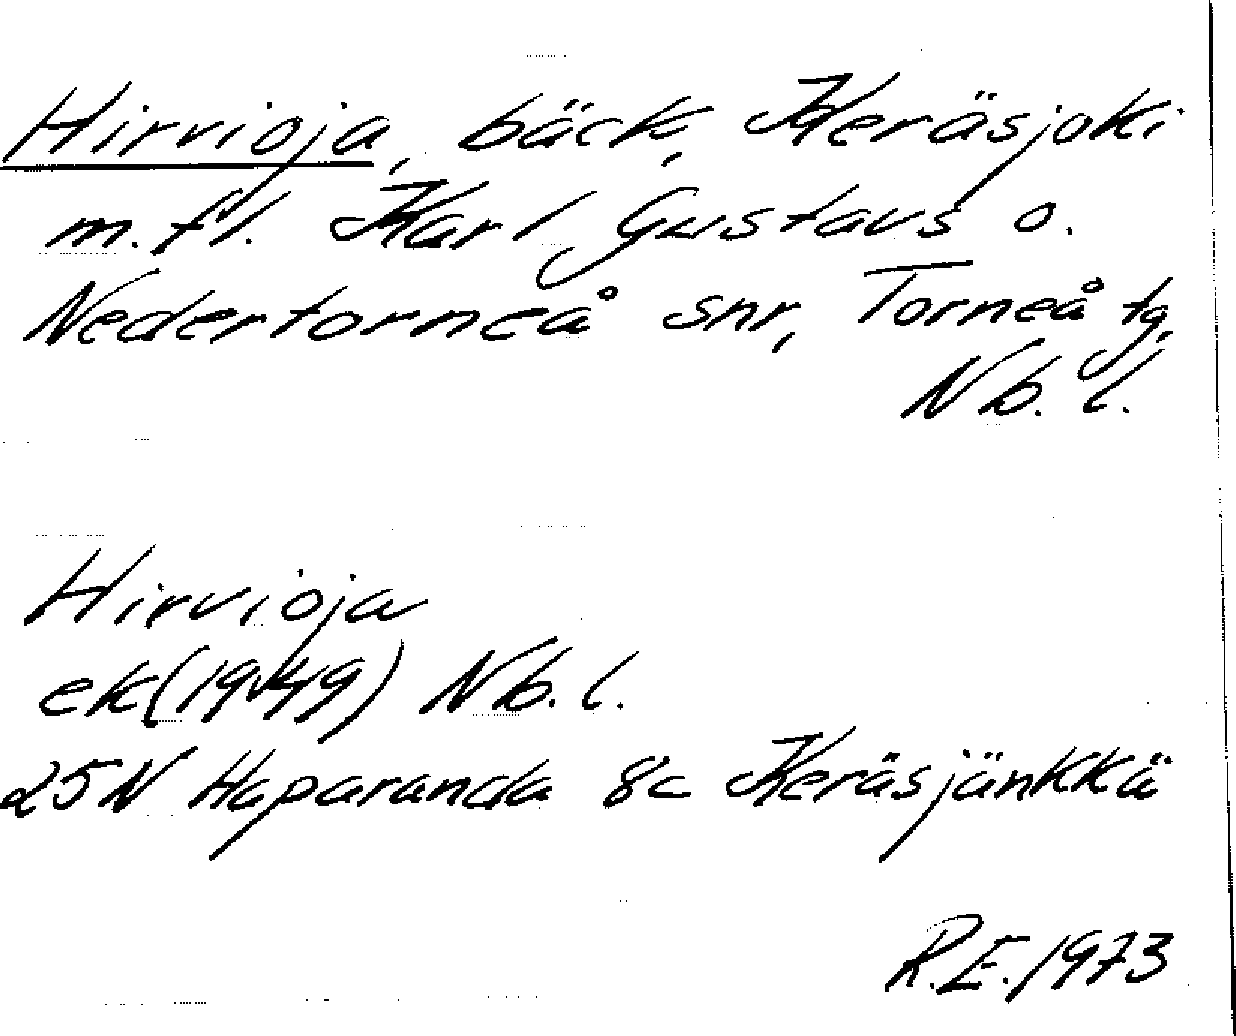 Hirvioja, bäck, Keräsjoki
m.fl. Karl Gustavs o.
Nedertorneå snr, Torneå tg,
Nb. l.
Hirvioja
ek(1949) Nb. l.
25N Haparanda 8c Keräsjänkkä
R.E. 1973